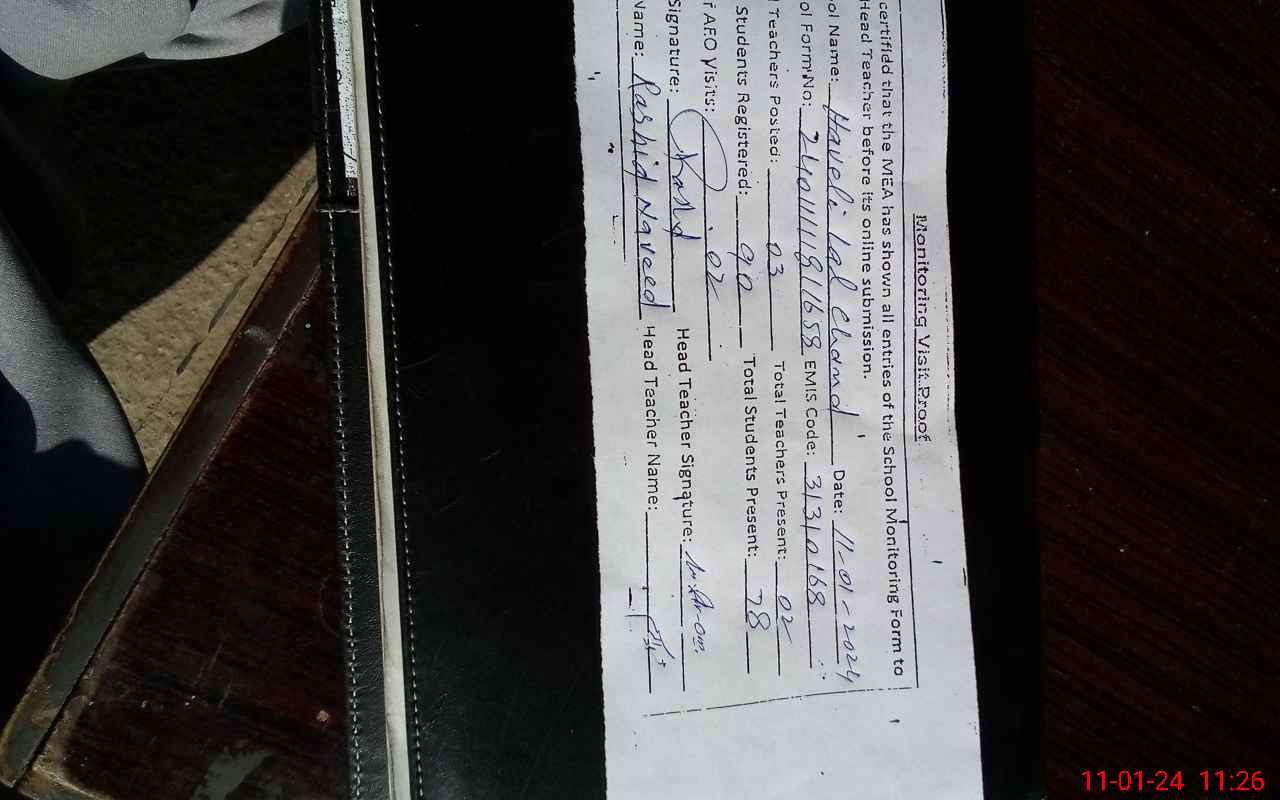 Monitoring Visit Proof
certifidd that the MEA has shown all entries of the School Monitoring Form to
Head Teacher before its online submission.
ol Name: Haveli Lal Chand Date: 11-01-2024
ol Form No: EMIS Code: 31310168
l Teachers Posted: 03 Total Teachers Present: 02
Students Registered: 90 Total Students Present: 78
f AEO Visits: 02
Signature: Rashid Head Teacher Signature:
Name: Rashid Naveed Head Teacher Name:
11-01-24 11:26